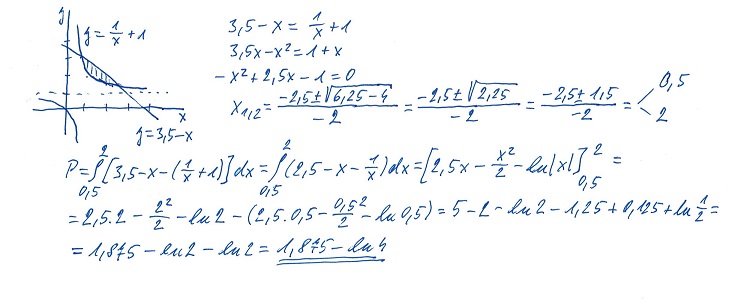 y
y = 1/x + 1
x
y = 3,5 - x
3,5 - x = 1/x + 1
3,5x - x² = 1 + x
- x² + 2,5x - 1 = 0
x₁,₂ = (-2,5 ± √(6,25 - 4))/(-2) = (-2,5 ± √(2,25))/(-2) = (-2,5 ± 1,5)/(-2) = < 0,5 2
P = ∫_{0,5}^{2} [3,5 - x - (1/x + 1)] dx = ∫_{0,5}^{2} (2,5 - x - 1/x) dx = [2,5x - x²/2 - ln|x|]_{0,5}^{2} =
= 2,5.2 - 2²/2 - ln2 - (2,5.0,5 - 0,5²/2 - ln0,5) = 5 - 2 - ln2 - 1,25 + 0,125 + ln 1/2 =
= 1,875 - ln2 - ln2 = 1,875 - ln4